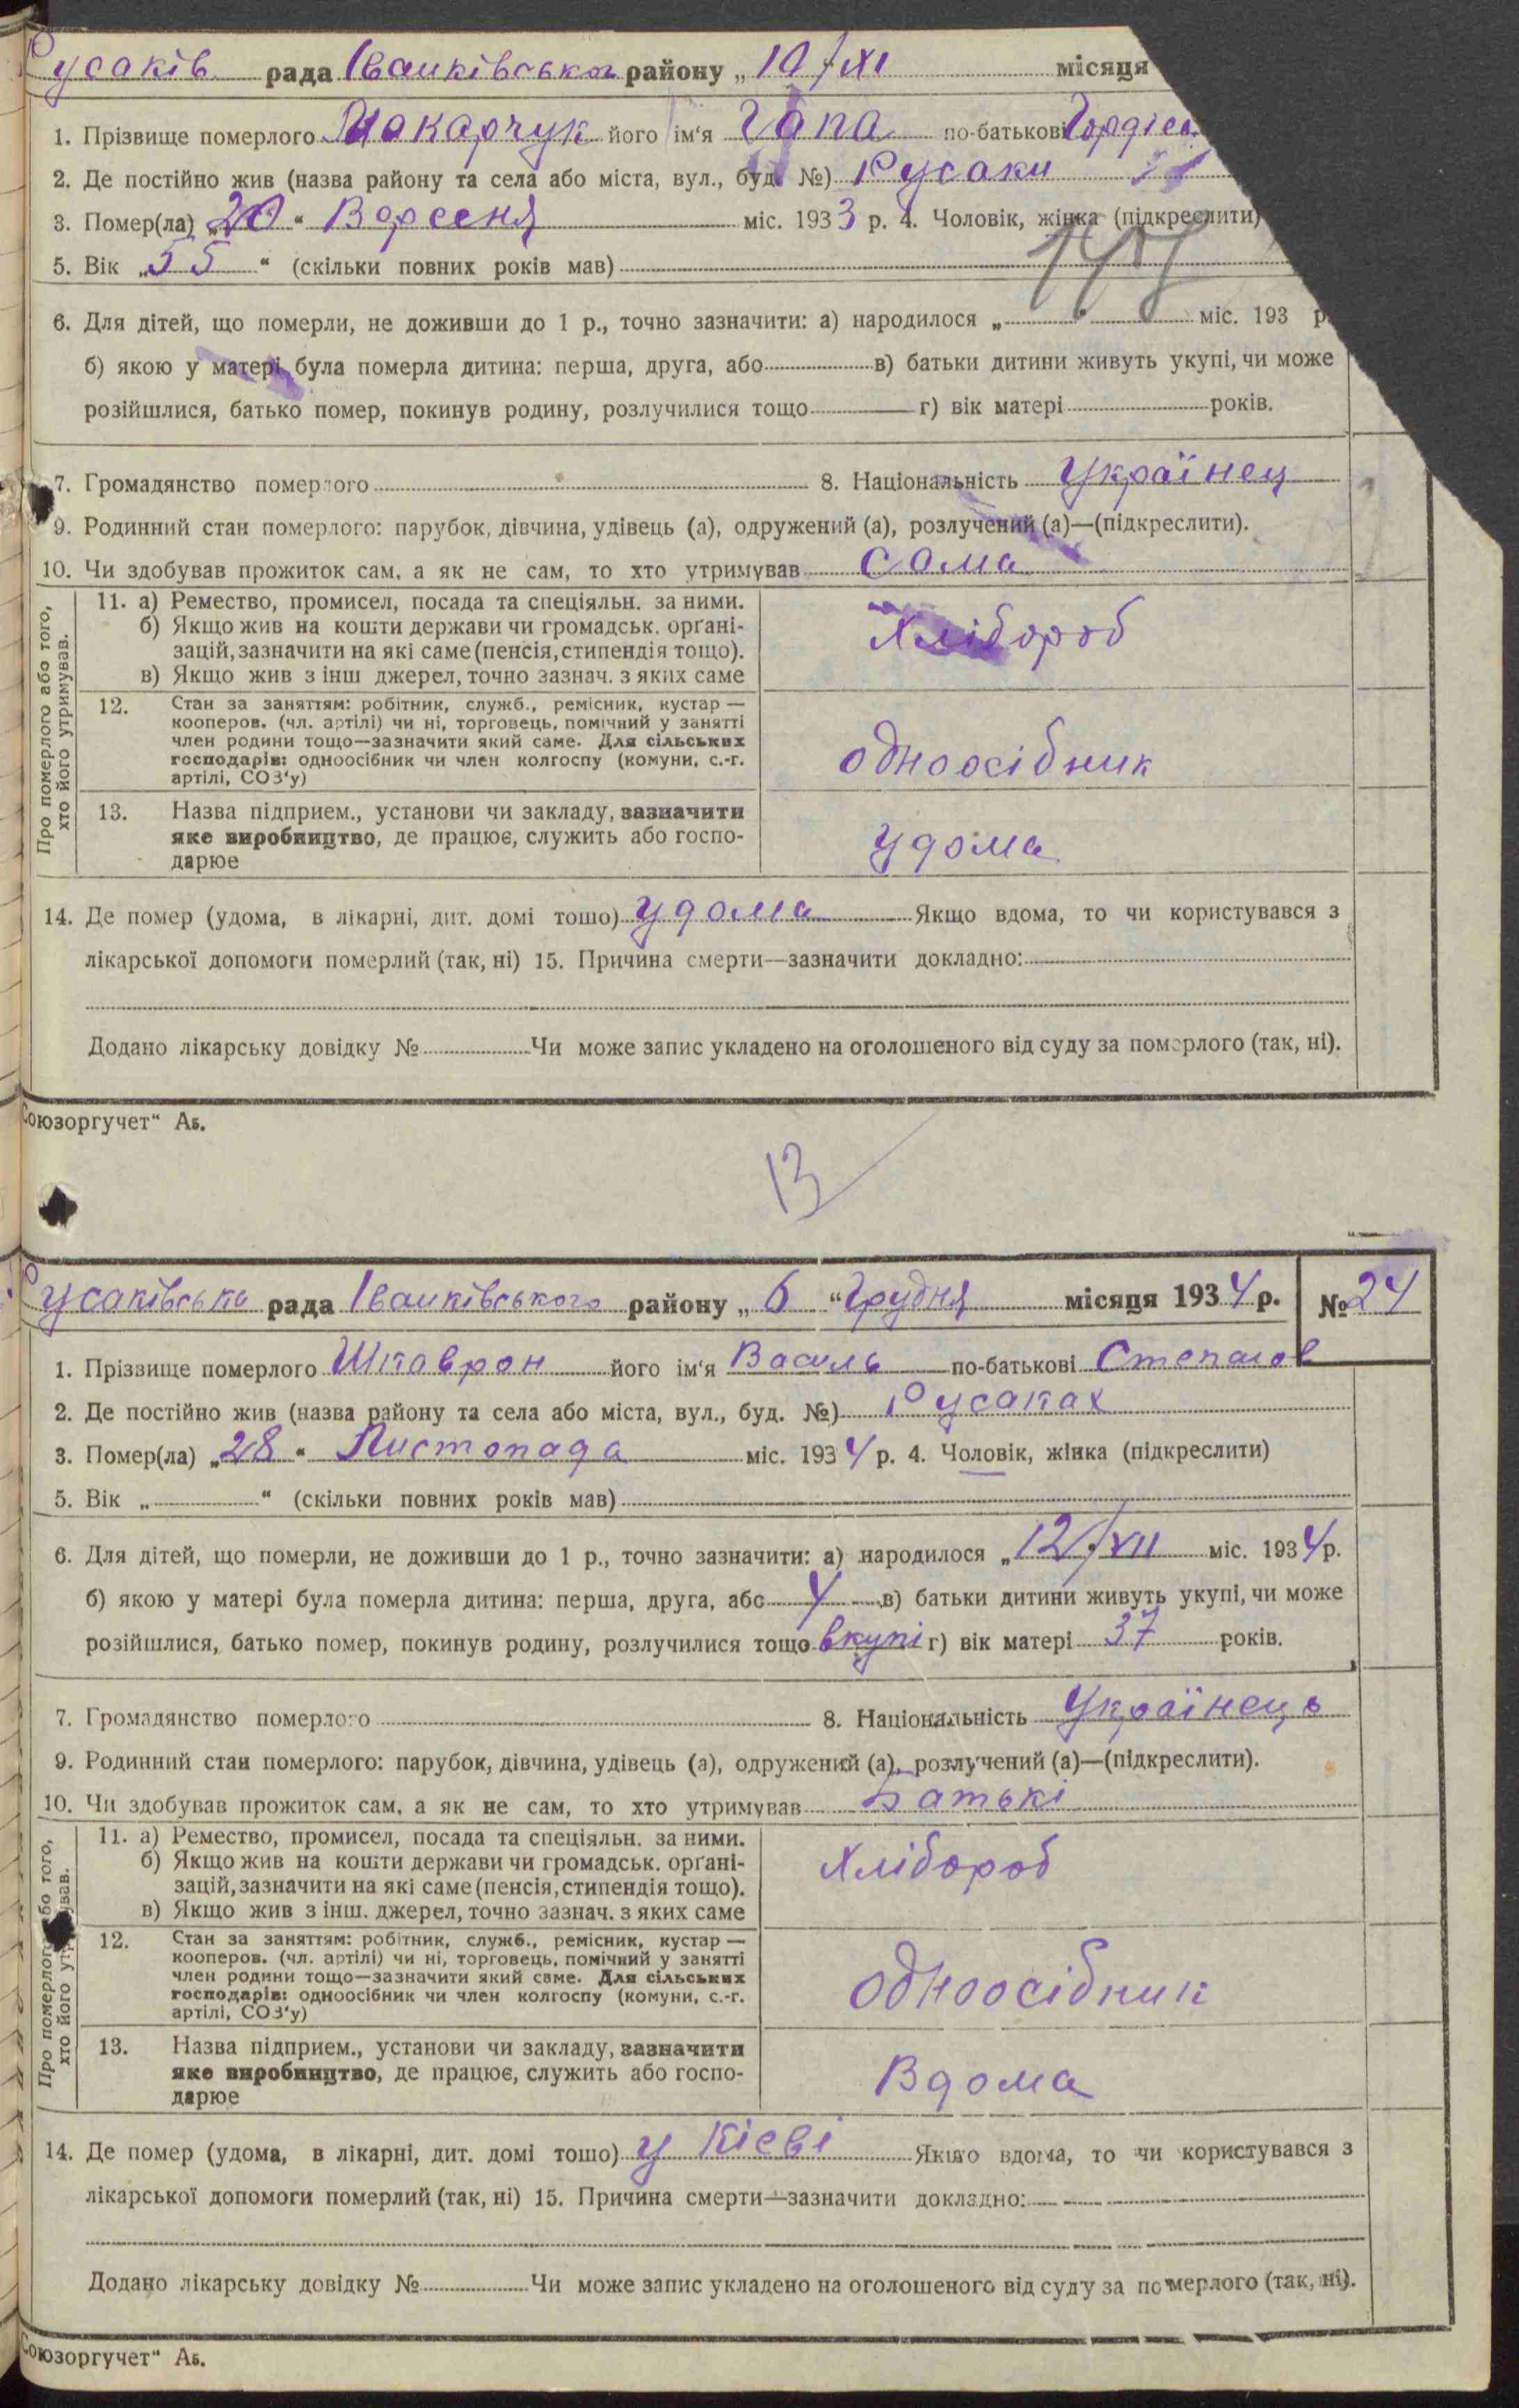 Русаків рада Іванківського району „ 10/XI місяця
1. Прізвище померлого Макарчук його ім'я Гапа по-батькові Гордієв
2. Де постійно жив (назва району та села або міста, вул., буд. №) Русаки
3. Помер(ла) „20“ Вересня міс. 1933 р. 4. Чоловік, жінка (підкреслити)
5. Вік „55“ (скільки повних років мав)
6. Для дітей, що померли, не доживши до 1 р., точно зазначити: а) народилося „ “ міс. 193 р.
б) якою у матері була померла дитина: перша, друга, або в) батьки дитини живуть укупі, чи може
розійшлися, батько помер, покинув родину, розлучилися тощо г) вік матері років.
7. Громадянство померлого 8. Національність Українец
9. Родинний стан померлого: парубок, дівчина, удівець (а), одружений (а), розлучений (а)—(підкреслити).
10. Чи здобував прожиток сам, а як не сам, то хто утримував сама
Про померлого або того, хто його утримував.
11. а) Ремество, промисел, посада та спеціяльн. за ними.
б) Якщо жив на кошти держави чи громадськ. орґані-
зацій, зазначити на які саме (пенсія, стипендія тощо).
в) Якщо жив з інш джерел, точно зазнач. з яких саме
Хлібороб
12. Стан за заняттям: робітник, служб., ремісник, кустар —
кооперов. (чл. артілі) чи ні, торговець, помічний у занятті
член родини тощо—зазначити який саме. Для сільських
господарів: одноосібник чи член колгоспу (комуни, с.-г.
артілі, СОЗ'у)
одноосібник
13. Назва підприєм., установи чи закладу, зазначити
яке виробництво, де працює, служить або госпо-
дарює
удома
14. Де помер (удома, в лікарні, дит. домі тошо) удома Якщо вдома, то чи користувався з
лікарської допомоги померлий (так, ні) 15. Причина смерти—зазначити докладно:
Додано лікарську довідку № Чи може запис укладено на оголошеного від суду за померлого (так, ні).
Союзоргучет“ Аб.
13
Русаківська рада Іванківського району „ 6 “ Грудня місяця 1934 р. № 24
1. Прізвище померлого Шкаврон його ім'я Василь по-батькові Степанов
2. Де постійно жив (назва району та села або міста, вул., буд. №) Русаках
3. Помер(ла) „28“ Листопада міс. 1934 р. 4. Чоловік, жінка (підкреслити)
5. Вік „ “ (скільки повних років мав)
6. Для дітей, що померли, не доживши до 1 р., точно зазначити: а) народилося „ 12/VII міс. 1934 р.
б) якою у матері була померла дитина: перша, друга, або 4 в) батьки дитини живуть укупі, чи може
розійшлися, батько помер, покинув родину, розлучилися тощо вкупі г) вік матері 37 років.
7. Громадянство померлого 8. Національність Українець
9. Родинний стан померлого: парубок, дівчина, удівець (а), одружений (а), розлучений (а)—(підкреслити).
10. Чи здобував прожиток сам, а як не сам, то хто утримував Батькі
Про померлого або того, хто його утримував.
11. а) Ремество, промисел, посада та спеціяльн. за ними.
б) Якщо жив на кошти держави чи громадськ. орґані-
зацій, зазначити на які саме (пенсія, стипендія тощо).
в) Якщо жив з інш. джерел, точно зазнач. з яких саме
Хлібороб
12. Стан за заняттям: робітник, служб., ремісник, кустар —
кооперов. (чл. артілі) чи ні, торговець, помічний у занятті
член родини тощо—зазначити який саме. Для сільських
господарів: одноосібник чи член колгоспу (комуни, с.-г.
артілі, СОЗ'у)
одноосібник
13. Назва підприєм., установи чи закладу, зазначити
яке виробництво, де працює, служить або госпо-
дарює
Вдома
14. Де помер (удома, в лікарні, дит. домі тошо) у Кієві Якщо вдома, то чи користувався з
лікарської допомоги померлий (так, ні) 15. Причина смерти—зазначити докладно:
Додано лікарську довідку № Чи може запис укладено на оголошеного від суду за померлого (так, ні).
Союзоргучет“ Аб.